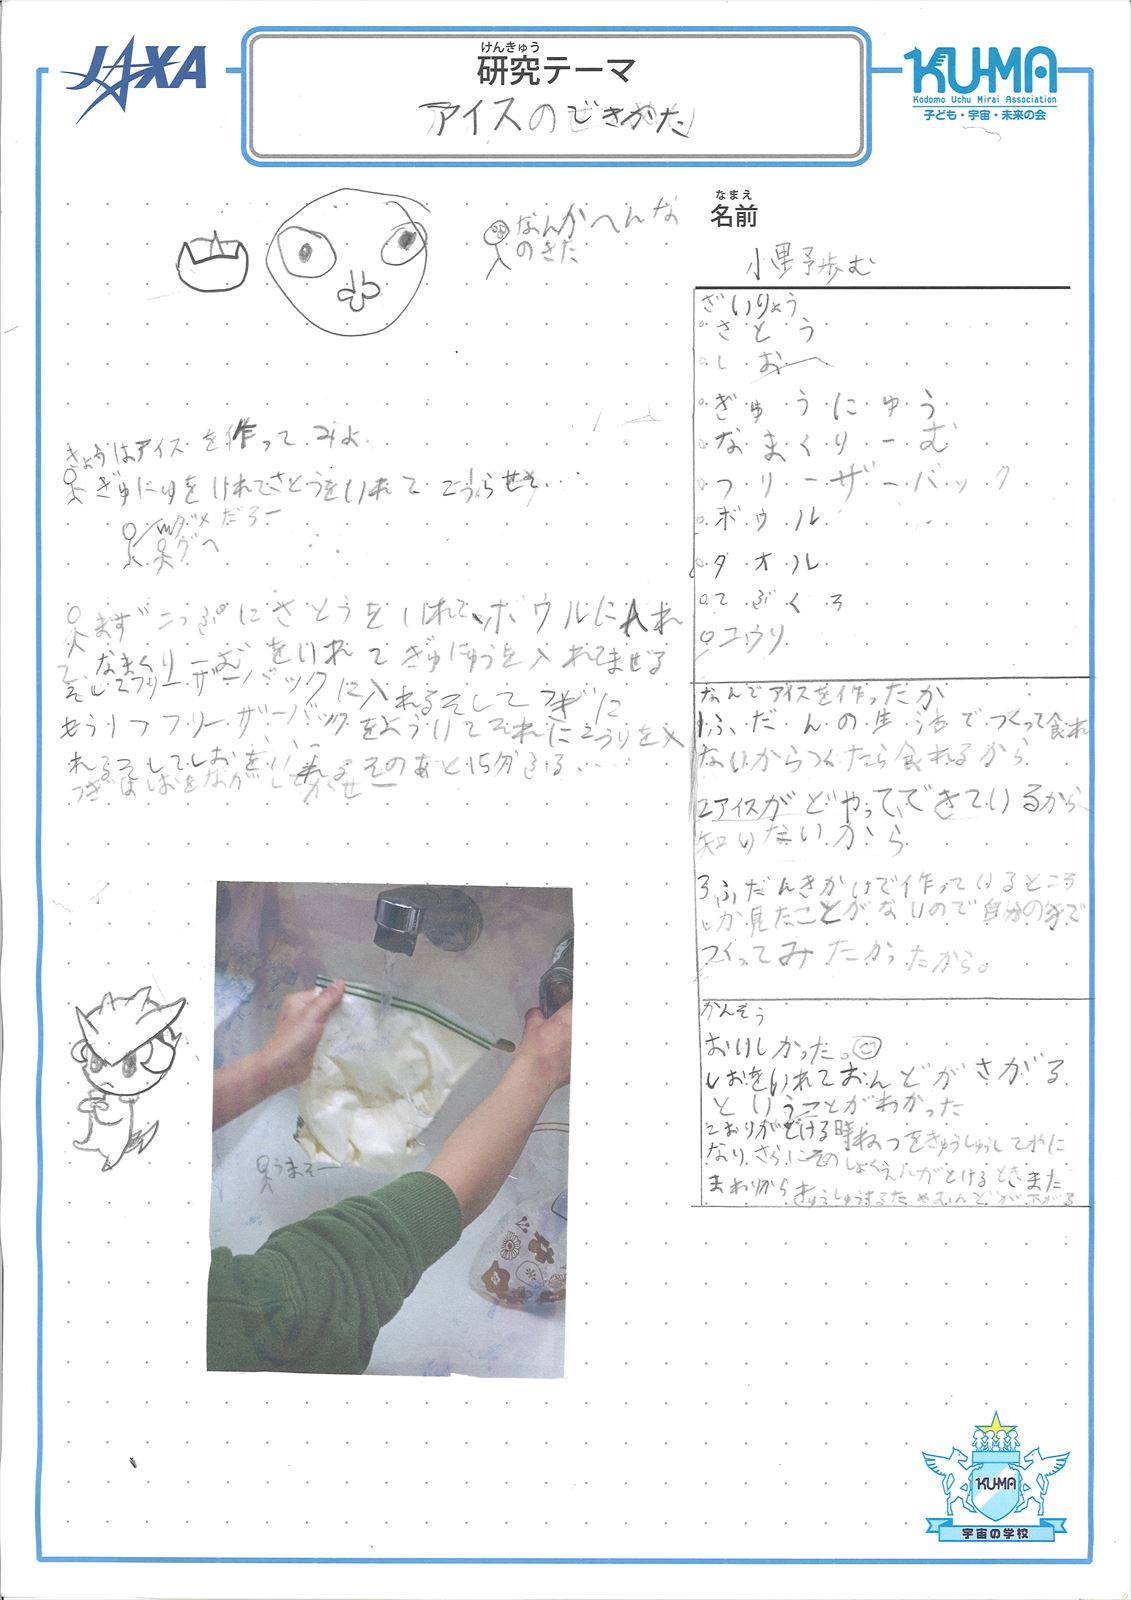 JAXA
けんきゅう
研究テーマ
アイスのできかた
KU-MA
Kodomo Uchu Mirai Association
子ども・宇宙・未来の会
なんかへんな
のきた
なまえ
名前
小野歩む
きょうはアイスを作ってみよ
ぎゅにゅをいれてさとうをいれて
ダメだろー
グへ
まずこっぷにさとうをいれて、ボウルに入れ
て、なまくりーむをいれてぎゅにゅうを入れてまぜる
そしてフリーザーバックに入れるそしてつぎに
もう1つフリーザーバックをよういてそれにこうりを入
れるそしてしおをいれるそのあと15分ふる....
つぎはしおをながして
うまそー
ざいりょう
さとう
しお
ぎゅうにゅう
なまくりーむ
フリーザーバック
ボウル
タオル
てぶくろ
コウリ
なんでアイスを作ったか
1ふだんの生活でつくって食れ
ないからつくたら食れるから
2アイスがどやってできているから
知りたいから
3ふだんきかいで作っているところ
しか見たことがないので自分の手で
つくってみたかったから。
かんそう
おいしかった。
しおをいれておんどがさがる
ということがわかった
こおりがとける時ねつをきゅうしゅしてれに
なり、さらにそのしょくえんがとけるときまた
まわりからきゅうしゅうするため
KU-MA
宇宙の学校